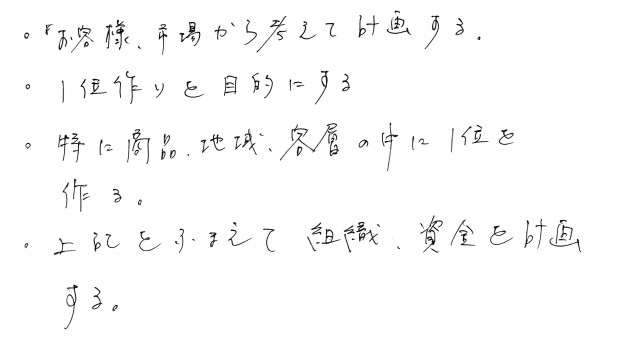 。「お客様、市場から考えて計画する。
・1位作りを目的にする
。特に商品、地域、客層の中に1位を
作る。
・上記をふまえて組織、資金を計画
する。